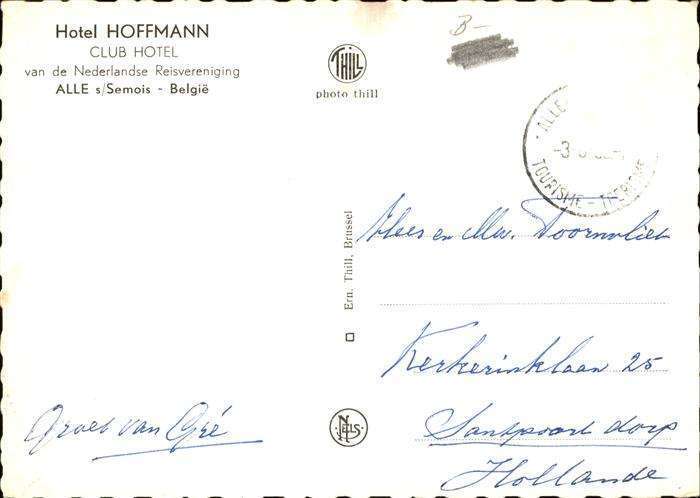 Hotel HOFFMANN
CLUB HOTEL
van de Nederlandse Reisvereniging
ALLE s/Semois - België
THILL
photo thill
B-
ALLE
-3-
TOURISME - TOERISME
Ern. Thill, Brussel
NELS
en Mw. Doornvliet
Kerkerinklaan 25
Santpoort dorp
Hollande
Groet van Gré